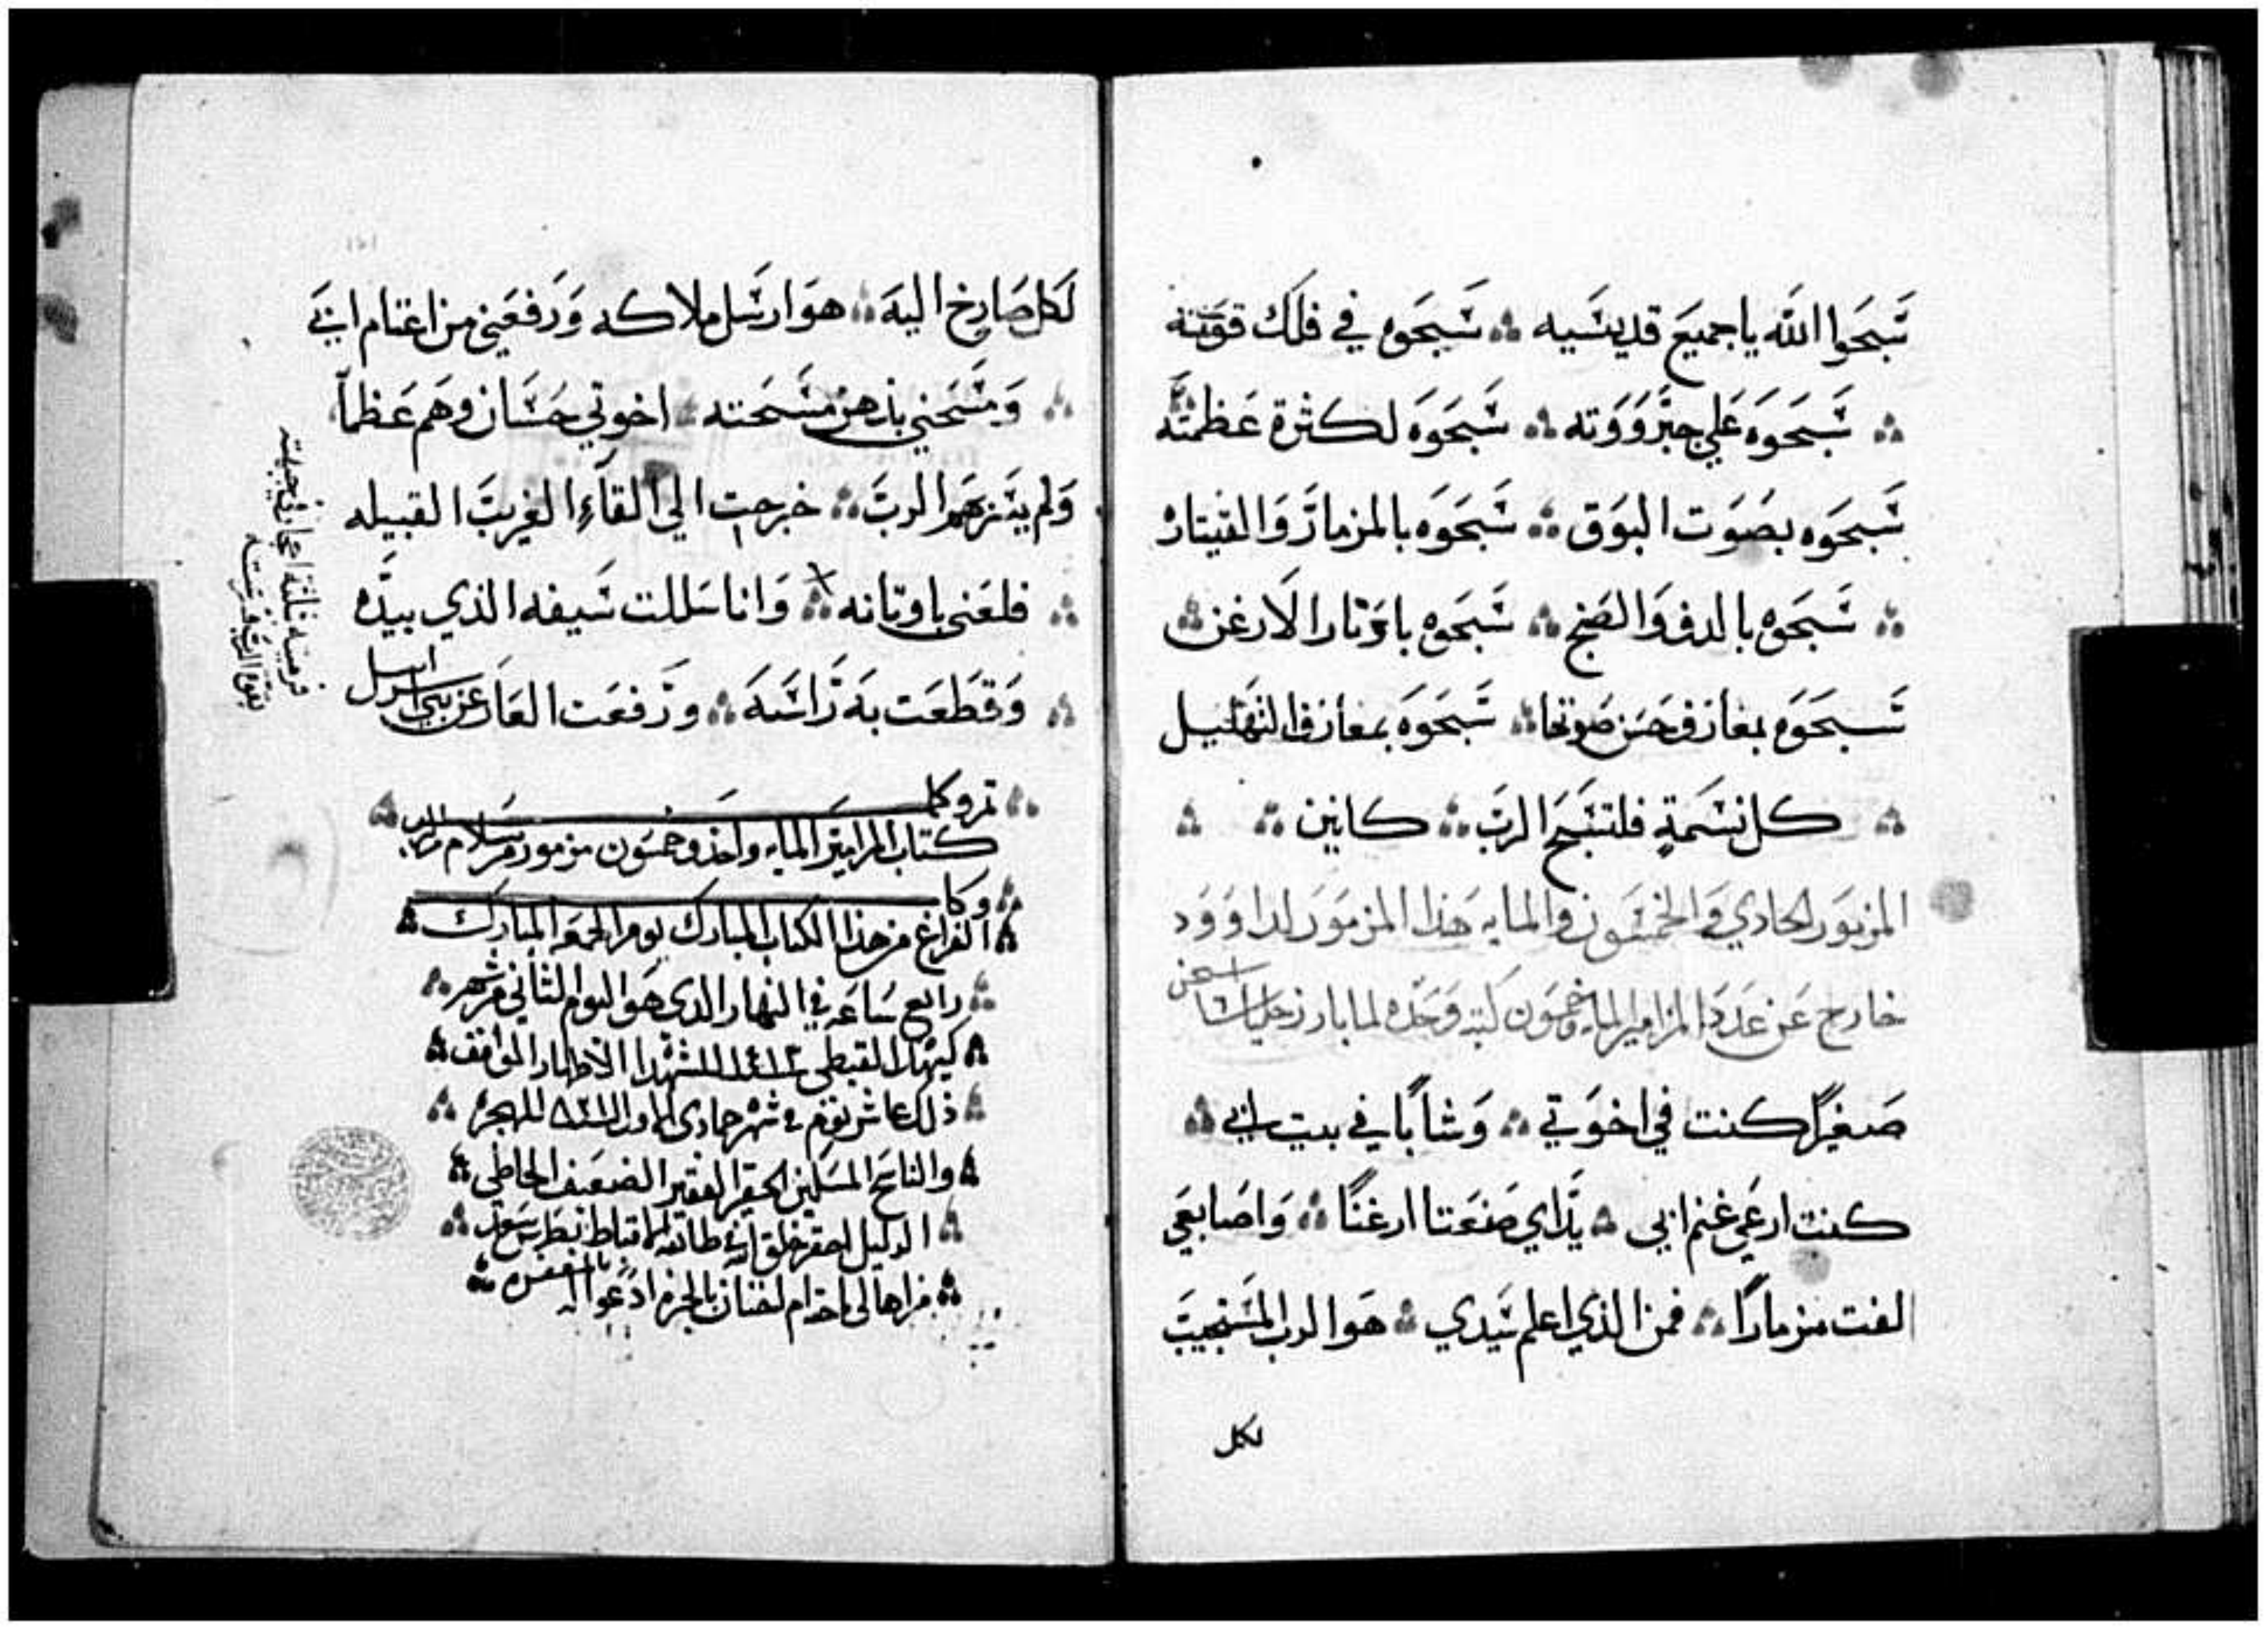 سَبحَوا الله يا جميعَ قديسَيه ∴ سَبحَوه في فلَك قوَته
∴ سَبحَوَه عَلي جبَروَوَته ∴ سَبحَوَه لكثرة عَظمتَه
سَبحَوه بصَوَت البَوَق ∴ سَبحَوَه بالمزمار وَالقيتاره
∴ سَبحَوه بالدف وَالصَنج ∴ سَبحَوه باوَتار الارغن ∴
سَبحَوَه بمعازف حَسَن صَوتها ∴ سَبحَوَه بمعازف التهَليل
∴ كل نسَمةٍ فلتسَبَح الربَ ∴ كانين ∴ ∴
المزمَور الحادي وَالخمسَون والمايه هَذا المزمَور لداوَوَد
خارج عَن عَدَد المزامير المايه وخمسَون كتبه وَحَده لما بارز جليات
صَغيرًا كنت في اخوَتي ∴ وَشابًا في بيت ابي ∴
كنت ارعَي غنم ابي ∴ يَداي صَنعَتا ارغنًا ∴ وَاصَابعَي
الفت مزمارًا ∴ فمن الذي اعلم سَيدي ∴ هَوا الرب المسَتجيبَ
لكل
لَكل صَارخ اليهَ ∴ هوَ ارسَل ملاكه وَرَفعَني من اغنام ابيَ
∴ وَمسَحَني بدهن مسَحَته ∴ اخوتي حَسَان وهَم عَظماً
وَلم يسَر بهَم الربَ ∴ خرجت الي القاءِ الغريبَ القبيله
∴ فلعَني باوتانه ∴ وَانا سَللت سَيفه الذي بيدَه
∴ وَقطَعَت بهَ رَاسَهَ ∴ ورَفعَت العَار عَن بني اسرايل
∴ تم وكمل
كتاب المزامير المايه واحَد وخمسَون مزمور بسَلام من الرب
∴ وكان
∴ الفراغ من هذا الكتاب المبارك يوم الجمعه المبارك ∴
∴ رابع سَاعَه في النهار الدي هَو اليوم الثاني من شهر ∴
∴ كيهك القبطي للشهدا الاطهار الموافق ∴
∴ ذلك عاشر يوم في شهر جمادي الاول للهجره ∴
∴ والناسَخ المسَكين الحقير الفقير الضعيف الخاطي ∴
∴ الدليل احقر خلق الله طايفه الاقباط بطرس ∴